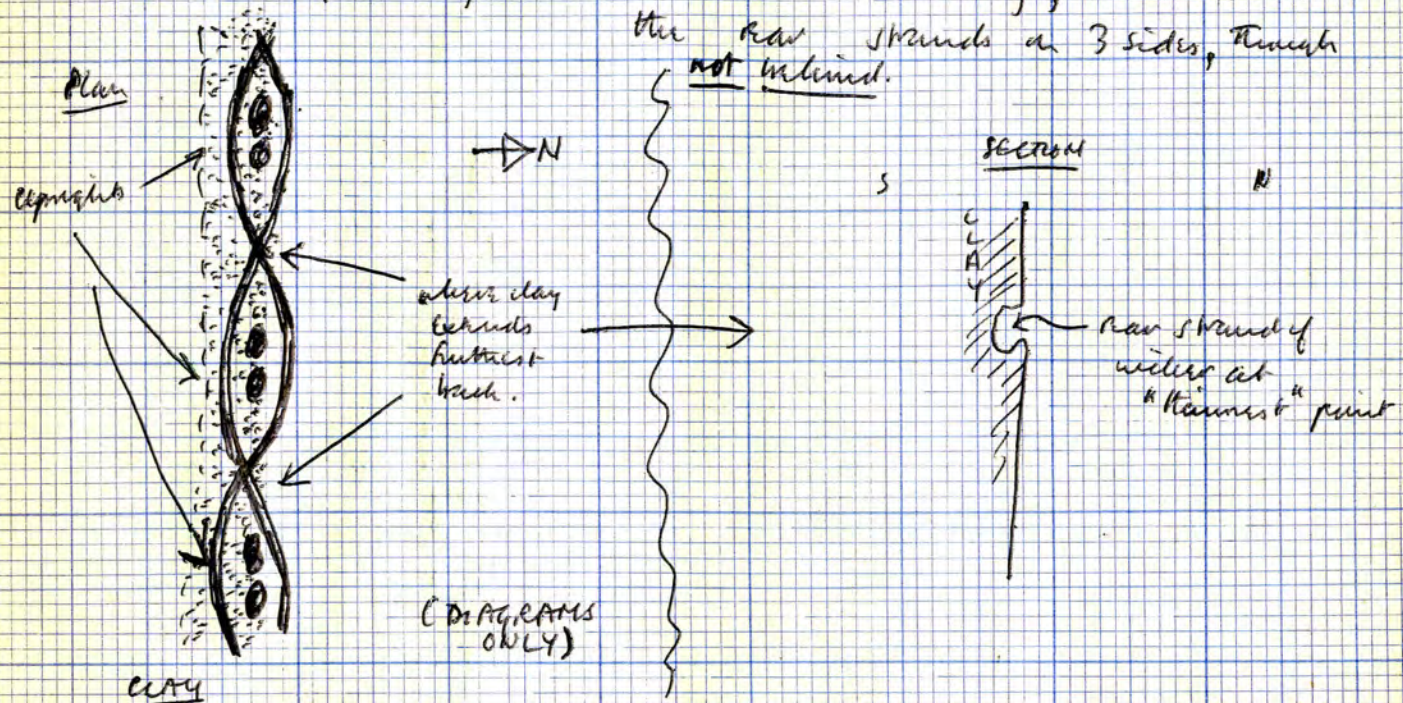 the rear strands on 3 sides, though
not behind.
Plan
N
uprights
where clay
extends
furthest
back.
(DIAGRAMS
ONLY)
CLAY
SECTION
S N
CLAY
rear strand of
at
" " point